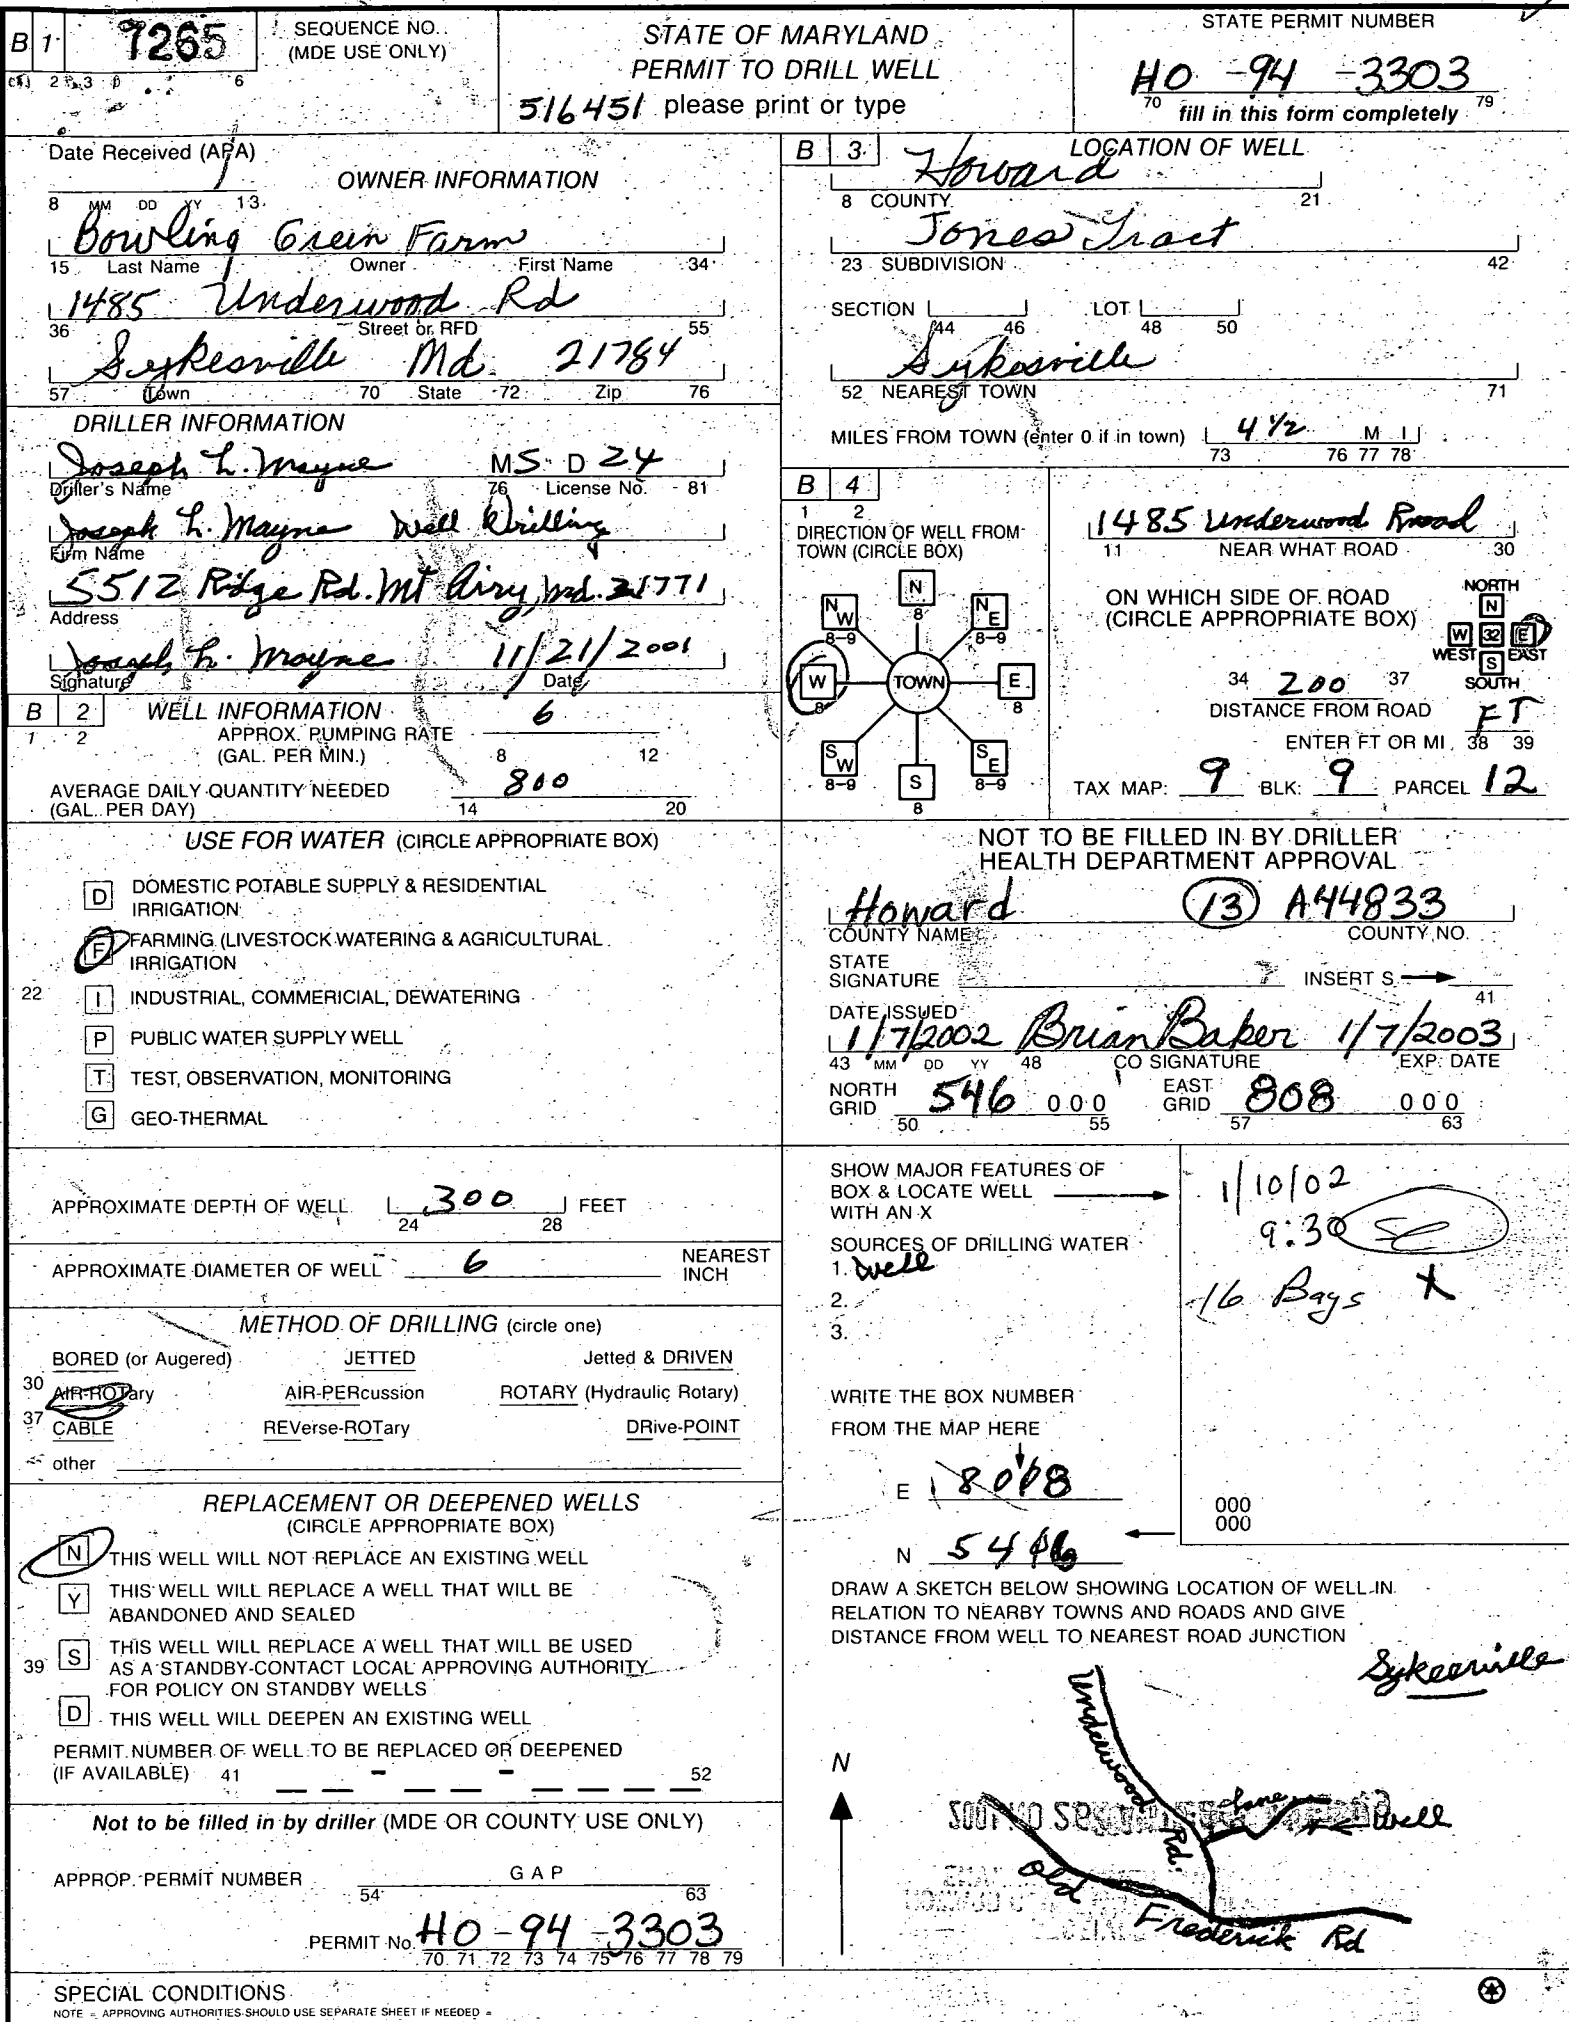 B 1 9265 SEQUENCE NO. (MDE USE ONLY)
2 3 6
STATE OF MARYLAND
PERMIT TO DRILL WELL
516451 please print or type
STATE PERMIT NUMBER
HO -94 -3303
70 79
fill in this form completely
Date Received (APA)
8 MM DD YY 13
OWNER INFORMATION
Bowling Green Farm
15 Last Name Owner First Name 34
1485 Underwood Rd
36 Street or RFD 55
Sykesville Md. 21784
57 Town 70 State 72 Zip 76
DRILLER INFORMATION
Joseph L. Mayne MS D 24
Driller's Name 76 License No. 81
Joseph L. Mayne Well Drilling
Firm Name
5512 Ridge Rd. Mt Airy, Md. 21771
Address
Joseph L. Mayne 11/21/2001
Signature Date
B 2 WELL INFORMATION
1 2
APPROX. PUMPING RATE 6
(GAL. PER MIN.) 8 12
AVERAGE DAILY QUANTITY NEEDED 800
(GAL. PER DAY) 14 20
USE FOR WATER (CIRCLE APPROPRIATE BOX)
D DOMESTIC POTABLE SUPPLY & RESIDENTIAL
IRRIGATION
F FARMING (LIVESTOCK WATERING & AGRICULTURAL
IRRIGATION
22 I INDUSTRIAL, COMMERICIAL, DEWATERING
P PUBLIC WATER SUPPLY WELL
T TEST, OBSERVATION, MONITORING
G GEO-THERMAL
APPROXIMATE DEPTH OF WELL 300 FEET
24 28
APPROXIMATE DIAMETER OF WELL 6 NEAREST
INCH
METHOD OF DRILLING (circle one)
BORED (or Augered) JETTED Jetted & DRIVEN
30 AIR-ROTary AIR-PERcussion ROTARY (Hydraulic Rotary)
37 CABLE REVerse-ROTary DRive-POINT
other
REPLACEMENT OR DEEPENED WELLS
(CIRCLE APPROPRIATE BOX)
N THIS WELL WILL NOT REPLACE AN EXISTING WELL
Y THIS WELL WILL REPLACE A WELL THAT WILL BE
ABANDONED AND SEALED
39 S THIS WELL WILL REPLACE A WELL THAT WILL BE USED
AS A STANDBY-CONTACT LOCAL APPROVING AUTHORITY
FOR POLICY ON STANDBY WELLS
D THIS WELL WILL DEEPEN AN EXISTING WELL
PERMIT NUMBER OF WELL TO BE REPLACED OR DEEPENED
(IF AVAILABLE) 41 - - 52
Not to be filled in by driller (MDE OR COUNTY USE ONLY)
APPROP. PERMIT NUMBER G A P
54 63
PERMIT No. HO -94 -3303
70 71 72 73 74 75 76 77 78 79
SPECIAL CONDITIONS
NOTE = APPROVING AUTHORITIES SHOULD USE SEPARATE SHEET IF NEEDED =
B 3 LOCATION OF WELL
Howard
8 COUNTY 21
Jones Tract
23 SUBDIVISION 42
SECTION LOT
44 46 48 50
Sykesville
52 NEAREST TOWN 71
MILES FROM TOWN (enter 0 if in town) 4 1/2 M I
73 76 77 78
B 4
1 2
DIRECTION OF WELL FROM
TOWN (CIRCLE BOX)
N 8
NW 8-9
NE 8-9
W 8
TOWN
E 8
SW 8-9
S 8
SE 8-9
1485 Underwood Road
11 NEAR WHAT ROAD 30
ON WHICH SIDE OF ROAD
(CIRCLE APPROPRIATE BOX)
NORTH
N
W 32 E
WEST S EAST
SOUTH
34 200 37
DISTANCE FROM ROAD FT
ENTER FT OR MI 38 39
TAX MAP: 9 BLK: 9 PARCEL 12
NOT TO BE FILLED IN BY DRILLER
HEALTH DEPARTMENT APPROVAL
Howard 13 A44833
COUNTY NAME COUNTY NO.
STATE
SIGNATURE INSERT S
41
DATE ISSUED
1/7/2002 Brian Baker 1/7/2003
43 MM DD YY 48 CO SIGNATURE EXP. DATE
NORTH GRID 546 000 EAST GRID 808 000
50 55 57 63
SHOW MAJOR FEATURES OF
BOX & LOCATE WELL
WITH AN X
SOURCES OF DRILLING WATER
1. Well
2.
3.
1/10/02
9:30
16 Bags X
WRITE THE BOX NUMBER
FROM THE MAP HERE
E 808
N 546
000
000
DRAW A SKETCH BELOW SHOWING LOCATION OF WELL IN
RELATION TO NEARBY TOWNS AND ROADS AND GIVE
DISTANCE FROM WELL TO NEAREST ROAD JUNCTION
Sykesville
N
Underwood Rd.
lane
Well
Old Frederick Rd